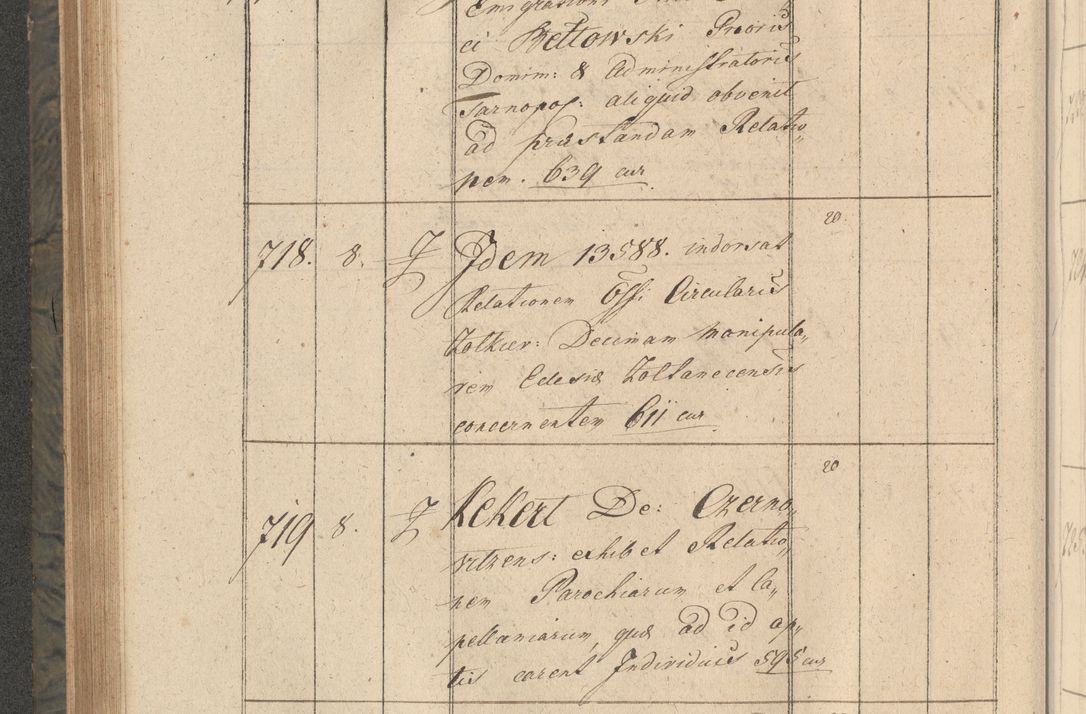 ci Bettowski Prioris
Domin: & Administratoris
Tarnopol: aliquid obvenit
ad præstandam Relatio„
nem. 639 cur
20
718. 8. Idem 13588. indorsat
Relationem Offi Circularis
Zolkiev: Decimam manipula„
rem Eclesiæ Zoltanecensis
concernentem 611 cur
20
719 8. Kekert De: Czerno„
vitzens: exhibet Relatio„
nem Parochiarum et Ca„
pellaniarum, quæ ad id ap„
tis carent Individuis 595 cur